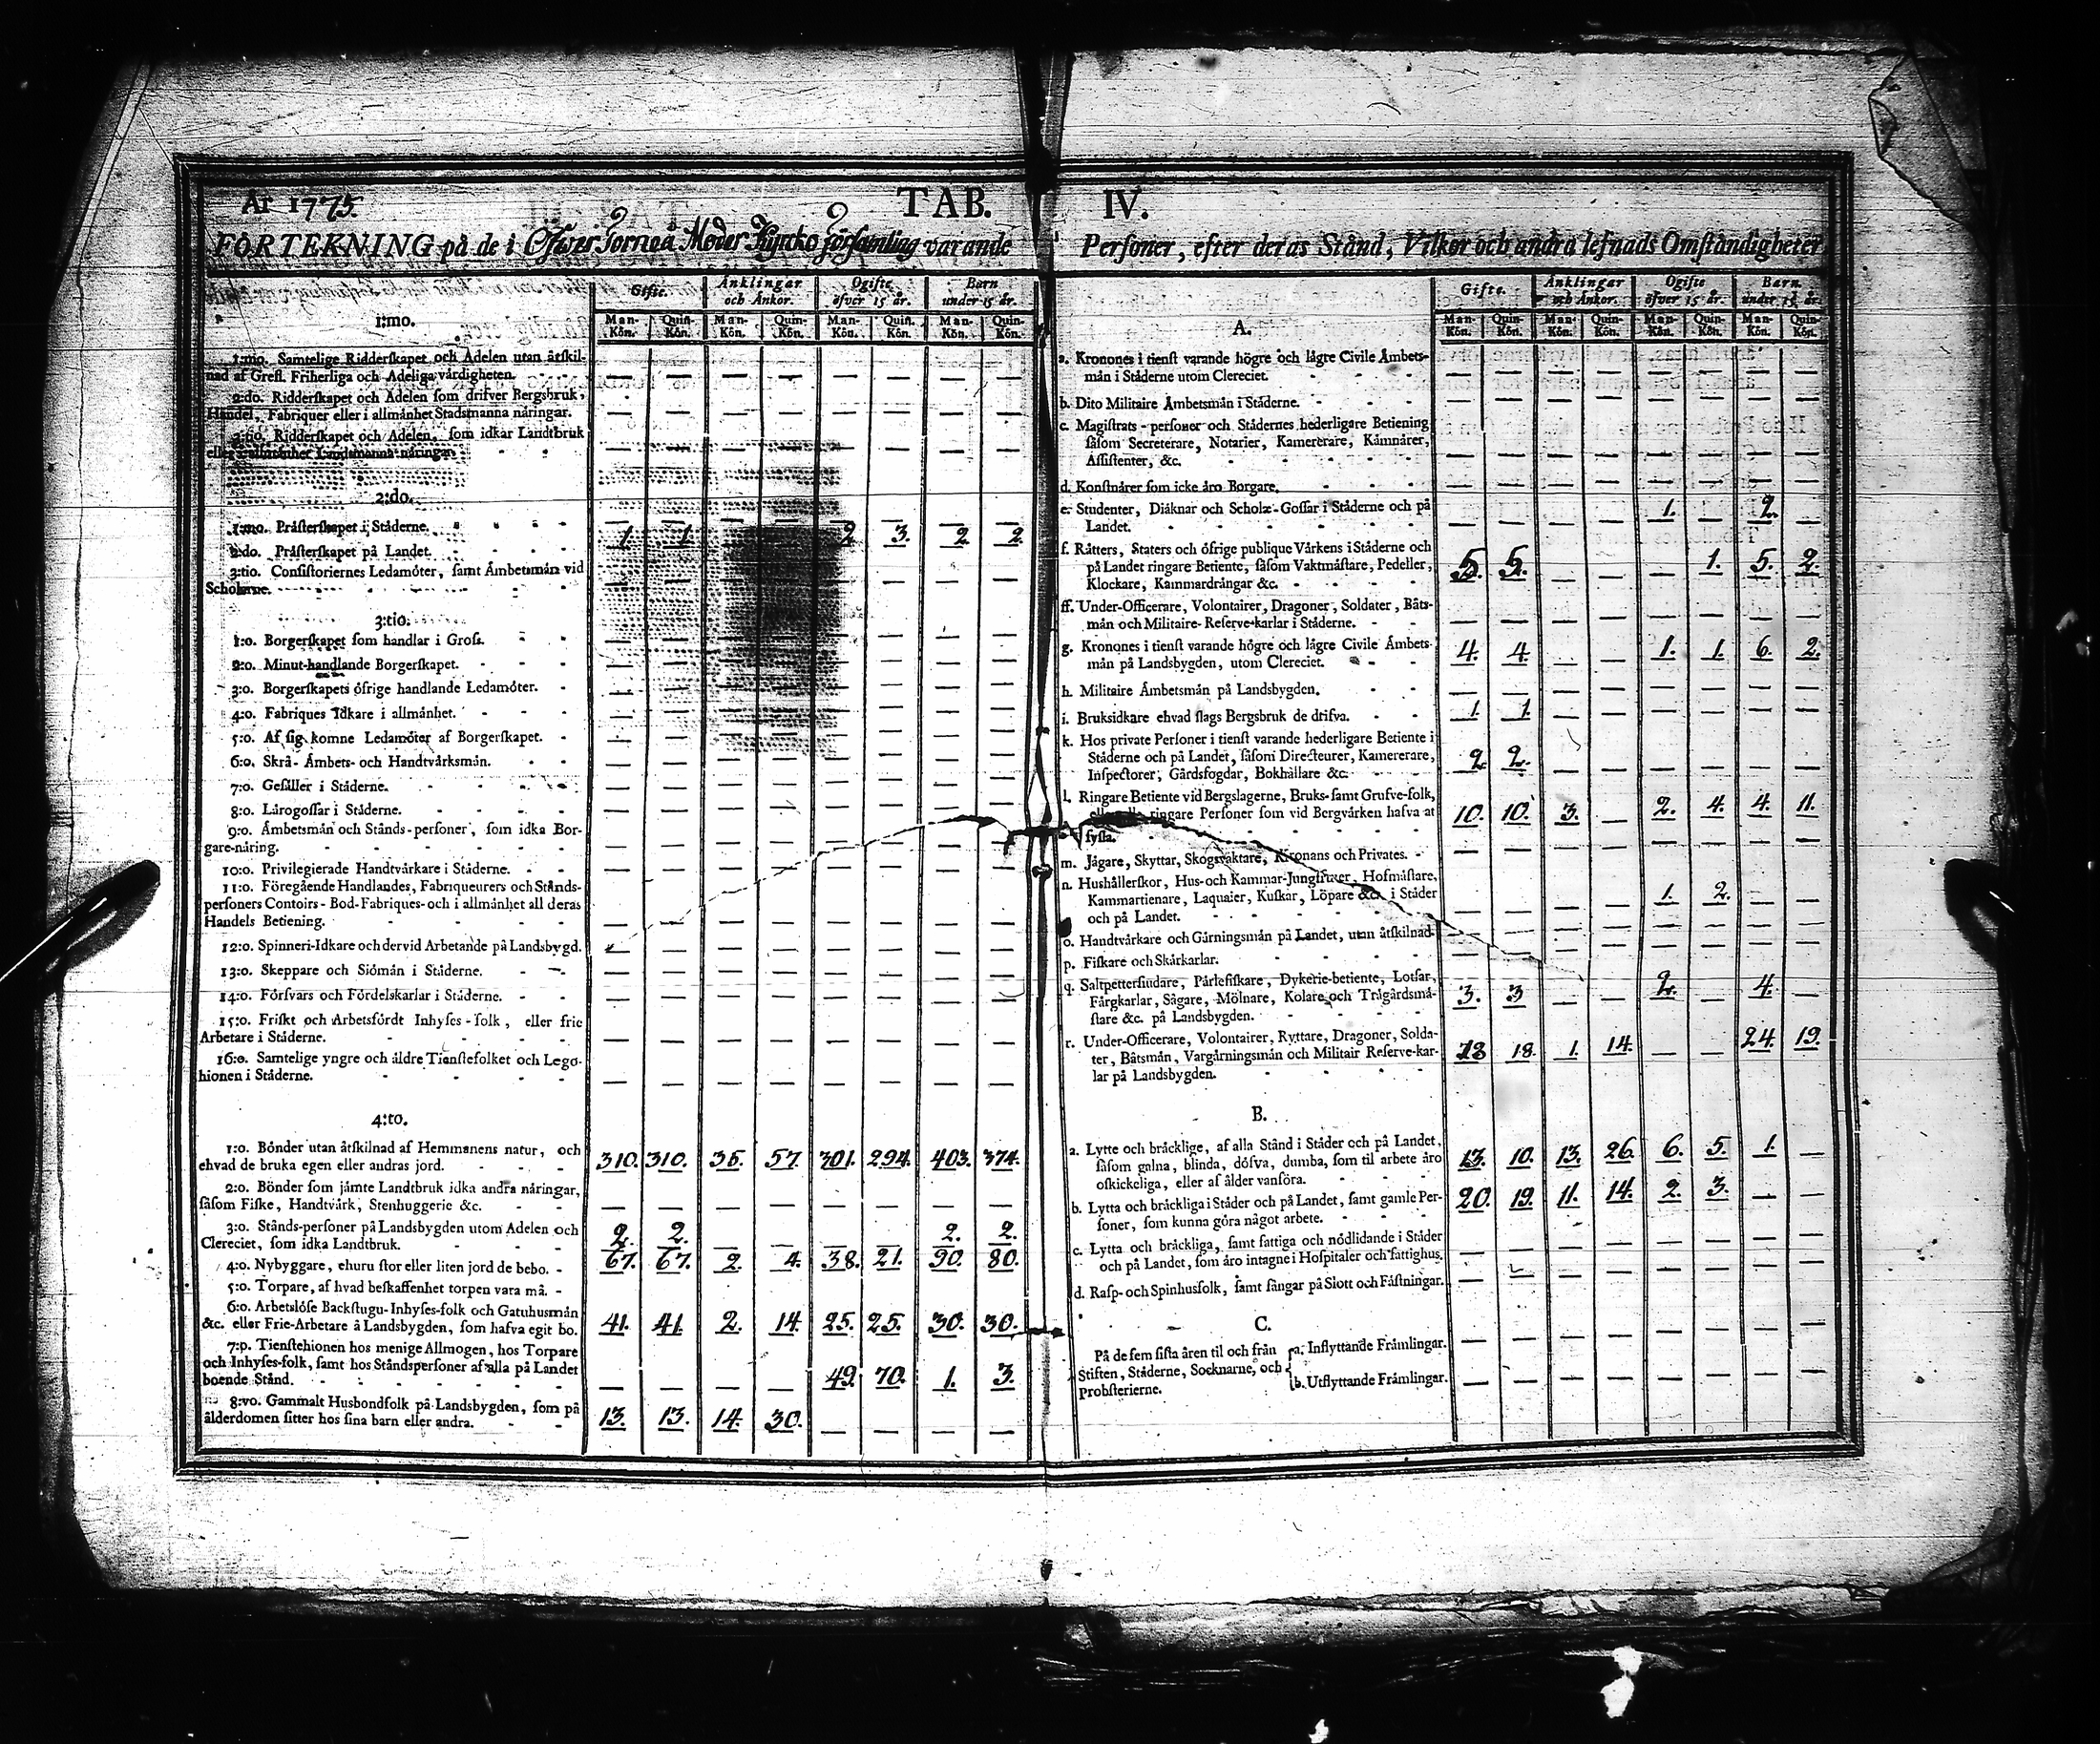 År 1775. TAB. IV.
FÖRTEKNING på de i Öfver Torneå Moder Kyrcko församling varande Personer, efter deras Stånd, Vilkor och andra lefnads Omståndigheter
Gifte. Änklingar och Änkor. Ogifte öfver 15 år. Barn under 15 år.
1:mo. Man-Kön. Quin-Kön. Man-Kön. Quin-Kön. Man-Kön. Quin-Kön. Man-Kön. Quin-Kön.
1:mo. Samtelige Ridderskapet och Adelen utan åtskil-
nad af Grefl. Friherliga och Adeliga vårdigheten. — — — — — — — —
2:do. Ridderskapet och Adelen som drifver Bergsbruk,
Handel, Fabriquer eller i allmånhet Stadsmanna nåringar. — — — — — — — —
3:tio. Ridderskapet och Adelen, som idkar Landtbruk
eller i allmånhet Landtmanna-nåringar. — — — — — — — —
2:do.
1:mo. Pråsterskapet i Ståderne. — — — — — — — —
2:do. Pråsterskapet på Landet. 1. 1. 2 3. 2 2.
3:tio. Consistoriernes Ledamóter, samt Åmbetsmån vid
Scholorne. — — — — — — — —
3:tio.
1:o. Borgerskapet som handlar i Gross. — — — — — — — —
2:o. Minut-handlande Borgerskapet. — — — — — — — —
3:o. Borgerskapets öfrige handlande Ledamöter. — — — — — — — —
4:o. Fabriques Idkare i allmånhet. — — — — — — — —
5:o. Af sig komne Ledamöter af Borgerskapet. — — — — — — — —
6:o. Skrå- Åmbets- och Handtvårksmån. — — — — — — — —
7:o. Gesåller i Ståderne. — — — — — — — —
8:o. Lårogossar i Ståderne. — — — — — — — —
9:o. Åmbetsmån och Stånds-personer, som idka Bor-
gare-nåring. — — — — — — — —
10:o. Privilegierade Handtvårkare i Ståderne. — — — — — — — —
11:o. Föregående Handlandes, Fabriqueurers och Stånds-
personers Contoirs- Bod-Fabriques-och i allmånhet all deras
Handels Betiening. — — — — — — — —
12:o. Spinneri-Idkare och dervid Arbetande på Landsbygd. — — — — — — — —
13:o. Skeppare och Siömån i Ståderne. — — — — — — — —
14:o. Försvars och Fördelskarlar i Ståderne. — — — — — — — —
15:o. Friskt och Arbetsfördt Inhyses-folk, eller frie
Arbetare i Ståderne. — — — — — — — —
16:o. Samtelige yngre och åldre Tienstefolket och Lego-
hionen i Ståderne. — — — — — — — —
4:to.
1:o. Bönder utan åtskilnad af Hemmanens natur, och
ehvad de bruka egen eller andras jord. 310. 310. 35. 57. 301. 294. 403. 374.
2:o. Bönder som jåmte Landtbruk idka andra nåringar,
såsom Fiske, Handtvårk, Stenhuggerie &c. — — — — — — — —
3:o. Stånds-personer på Landsbygden utom Adelen och
Clereciet, som idka Landtbruk. 2. 2. — — — — 2. 2.
4:o. Nybyggare, ehuru stor eller liten jord de bebo. 67. 67. 2. 4. 38. 21. 90. 80.
5:o. Torpare, af hvad beskaffenhet torpen vara må.
6:o. Arbetslöse Backstugu-Inhyses-folk och Gatuhusmån
&c. eller Frie-Arbetare å Landsbygden, som hafva egit bo. 41. 41. 2. 14. 25. 25. 30. 30.
7:o. Tienstehionen hos menige Allmogen, hos Torpare
och Inhyses-folk, samt hos Ståndspersoner af alla på Landet
boende Stånd. — — — — 49. 70. 1. 3.
8:vo. Gammalt Husbondfolk på Landsbygden, som på
ålderdomen sitter hos sina barn eller andra. 13. 13. 14. 30. — — — —
Gifte. Änklingar och Änkor. Ogifte öfver 15 år. Barn under 15 år.
A. Man-Kön. Quin-Kön. Man-Kön. Quin-Kön. Man-Kön. Quin-Kön. Man-Kön. Quin-Kön.
a. Kronones i tienst varande högre och lågre Civile Åmbets-
mån i Ståderne utom Clereciet. — — — — — — — —
b. Dito Militaire Åmbetsmån i Ståderne. — — — — — — — —
c. Magistrats-personer och Stådernes hederligare Betiening
såsom Secreterare, Notarier, Kamererare, Kåmnårer,
Assistenter, &c. — — — — — — — —
d. Konstnårer som icke åro Borgare. — — — — — — — —
e. Studenter, Diåknar och Scholæ-Gossar i Ståderne och på
Landet. — — — — 1. — 2. —
f. Råtters, Staters och öfrige publique Vårkens i Ståderne och
på Landet ringare Betiente, såsom Vaktmåstare, Pedeller,
Klockare, Kammardrångar &c. 5. 5. — — — 1. 5. 2.
ff. Under-Officerare, Volontairer, Dragoner, Soldater, Båts-
mån och Militaire-Reserve-karlar i Ståderne. — — — — — — — —
g. Kronones i tienst varande högre och lågre Civile Åmbets-
mån på Landsbygden, utom Clereciet. 4. 4. — — 1. 1. 6. 2.
h. Militaire Åmbetsmån på Landsbygden. — — — — — — — —
i. Bruksidkare ehvad slags Bergsbruk de drifva. 1. 1. — — — — — —
k. Hos private Personer i tienst varande hederligare Betiente i
Ståderne och på Landet, såsom Directeurer, Kamererare,
Inspectorer, Gårdsfogdar, Bokhållare &c. 2 2. — — — — — —
l. Ringare Betiente vid Bergslagerne, Bruks- samt Grufve-folk,
ringare Personer som vid Bergvårken hafva at
syssla. 10. 10. 3. — 2. 4. 4. 11.
m. Jågare, Skyttar, Skogsvaktare, Kronans och Privates. — — — — — — — —
n. Hushållerskor, Hus-och Kammar-Jungfrurer, Hofmåstare,
Kammartienare, Laquaier, Kuskar, Löpare &c. i Ståder
och på Landet. — — — — 1. 2. — —
o. Handtvårkare och Gårningsmån på Landet, utan åtskilnad — — — — — — — —
p. Fiskare och Skårkarlar. — — — — — — — —
q. Saltpettersiudare, Pårlefiskare, Dykerie-betiente, Lotsar,
Fårgkarlar, Sågare, Mölnare, Kolare och Trågårdsmå-
stare &c. på Landsbygden. 3. 3 — — 2. — 4. —
r. Under-Officerare, Volontairer, Ryttare, Dragoner, Solda-
ter, Båtsmån, Vargårningsmån och Militair Reserve-kar-
lar på Landsbygden. 18 18. 1. 14. — — 24 19.
B.
a. Lytte och bråcklige, af alla Stånd i Ståder och på Landet,
såsom galna, blinda, döfva, dumba, som til arbete åro
oskickeliga, eller af ålder vanföra. 13. 10. 13. 26. 6. 5. 1. —
b. Lytta och bråckliga i Ståder och på Landet, samt gamle Per-
soner, som kunna göra något arbete. 20. 19. 11. 14. 2. 3. — —
c. Lytta och bråckliga, samt fattiga och nödlidande i Ståder
och på Landet, som åro intagne i Hospitaler och fattighus. — — — — — — — —
d. Rasp- och Spinhusfolk, samt fångar på Slott och Fåstningar. — — — — — — —
C.
På de fem sista åren til och från
Stiften, Ståderne, Socknarne, och
Probsterierne.
a. Inflyttande Fråmlingar. — — — — — — — —
b. Utflyttande Fråmlingar. — — — — — — — —